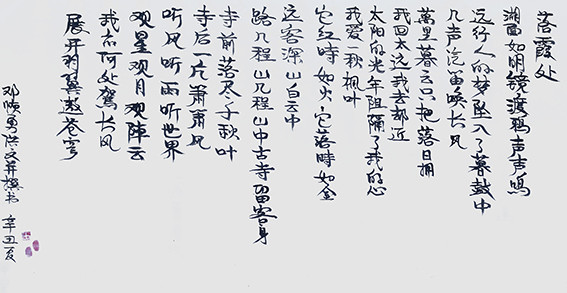 落霞处
湖面如明镜渡鸦声声鸣
远行人的梦坠入了暮鼓中
几声汽笛唤长风
萬里暮云只把落日拥
我回太远我去却近
太阳的光年阻隔了我的心
我爱一秋枫叶
它红時如火,它落時如金
远客深山白云中
路几程山几程山中古寺留客身
寺前落尽千秋叶
寺后一片萧萧风
听风听雨听世界
观星观月观阵云
我亦何处驾长风
展开羽翼遨苍穹
邓 男 文并撰书 辛丑夏